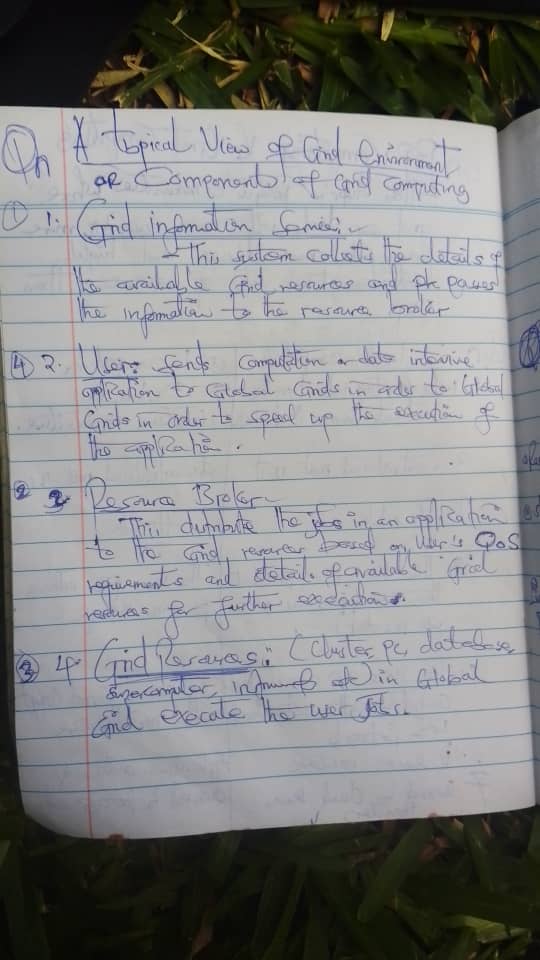 Qn A Topical View of Grid Environment
OR Components of Grid Computing
① 1. Grid information Service:-
- This system collects the details of
the available Grid resources and passes
the information to the resource broker
④ 2. User: Sends computation or data intensive
application to Global Grids in order to Global
Grids in order to speed up the execution of
the application.
② 3. Resource Broker-
This distribute the jobs in an application
to the Grid resources based on User's QoS
requirements and details of available Grid
resources for further executions.
③ 4. Grid Resources: (Cluster, PC, database,
supercomputer, instruments etc) in Global
Grid execute the user jobs.